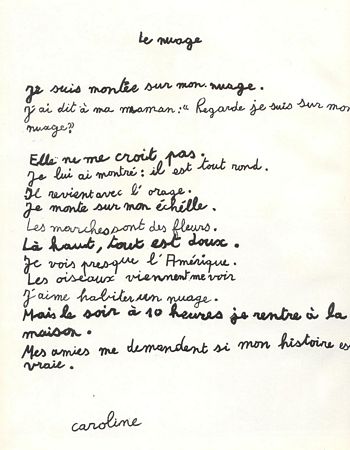 le nuage
Je suis montée sur mon nuage.
J'ai dit à ma maman: " Regarde je suis sur mon
nuage"
Elle ne me croit pas.
Je lui ai montré: il est tout rond.
Il revient avec l'orage.
Je monte sur mon échelle.
Les marches sont des fleurs.
Là haut, tout est doux.
Je vois presque l'Amérique.
Les oiseaux viennent me voir
J'aime habiter un nuage.
Mais le soir à 10 heures je rentre à la
maison.
Mes amies me demandent si mon histoire es
vraie.
caroline